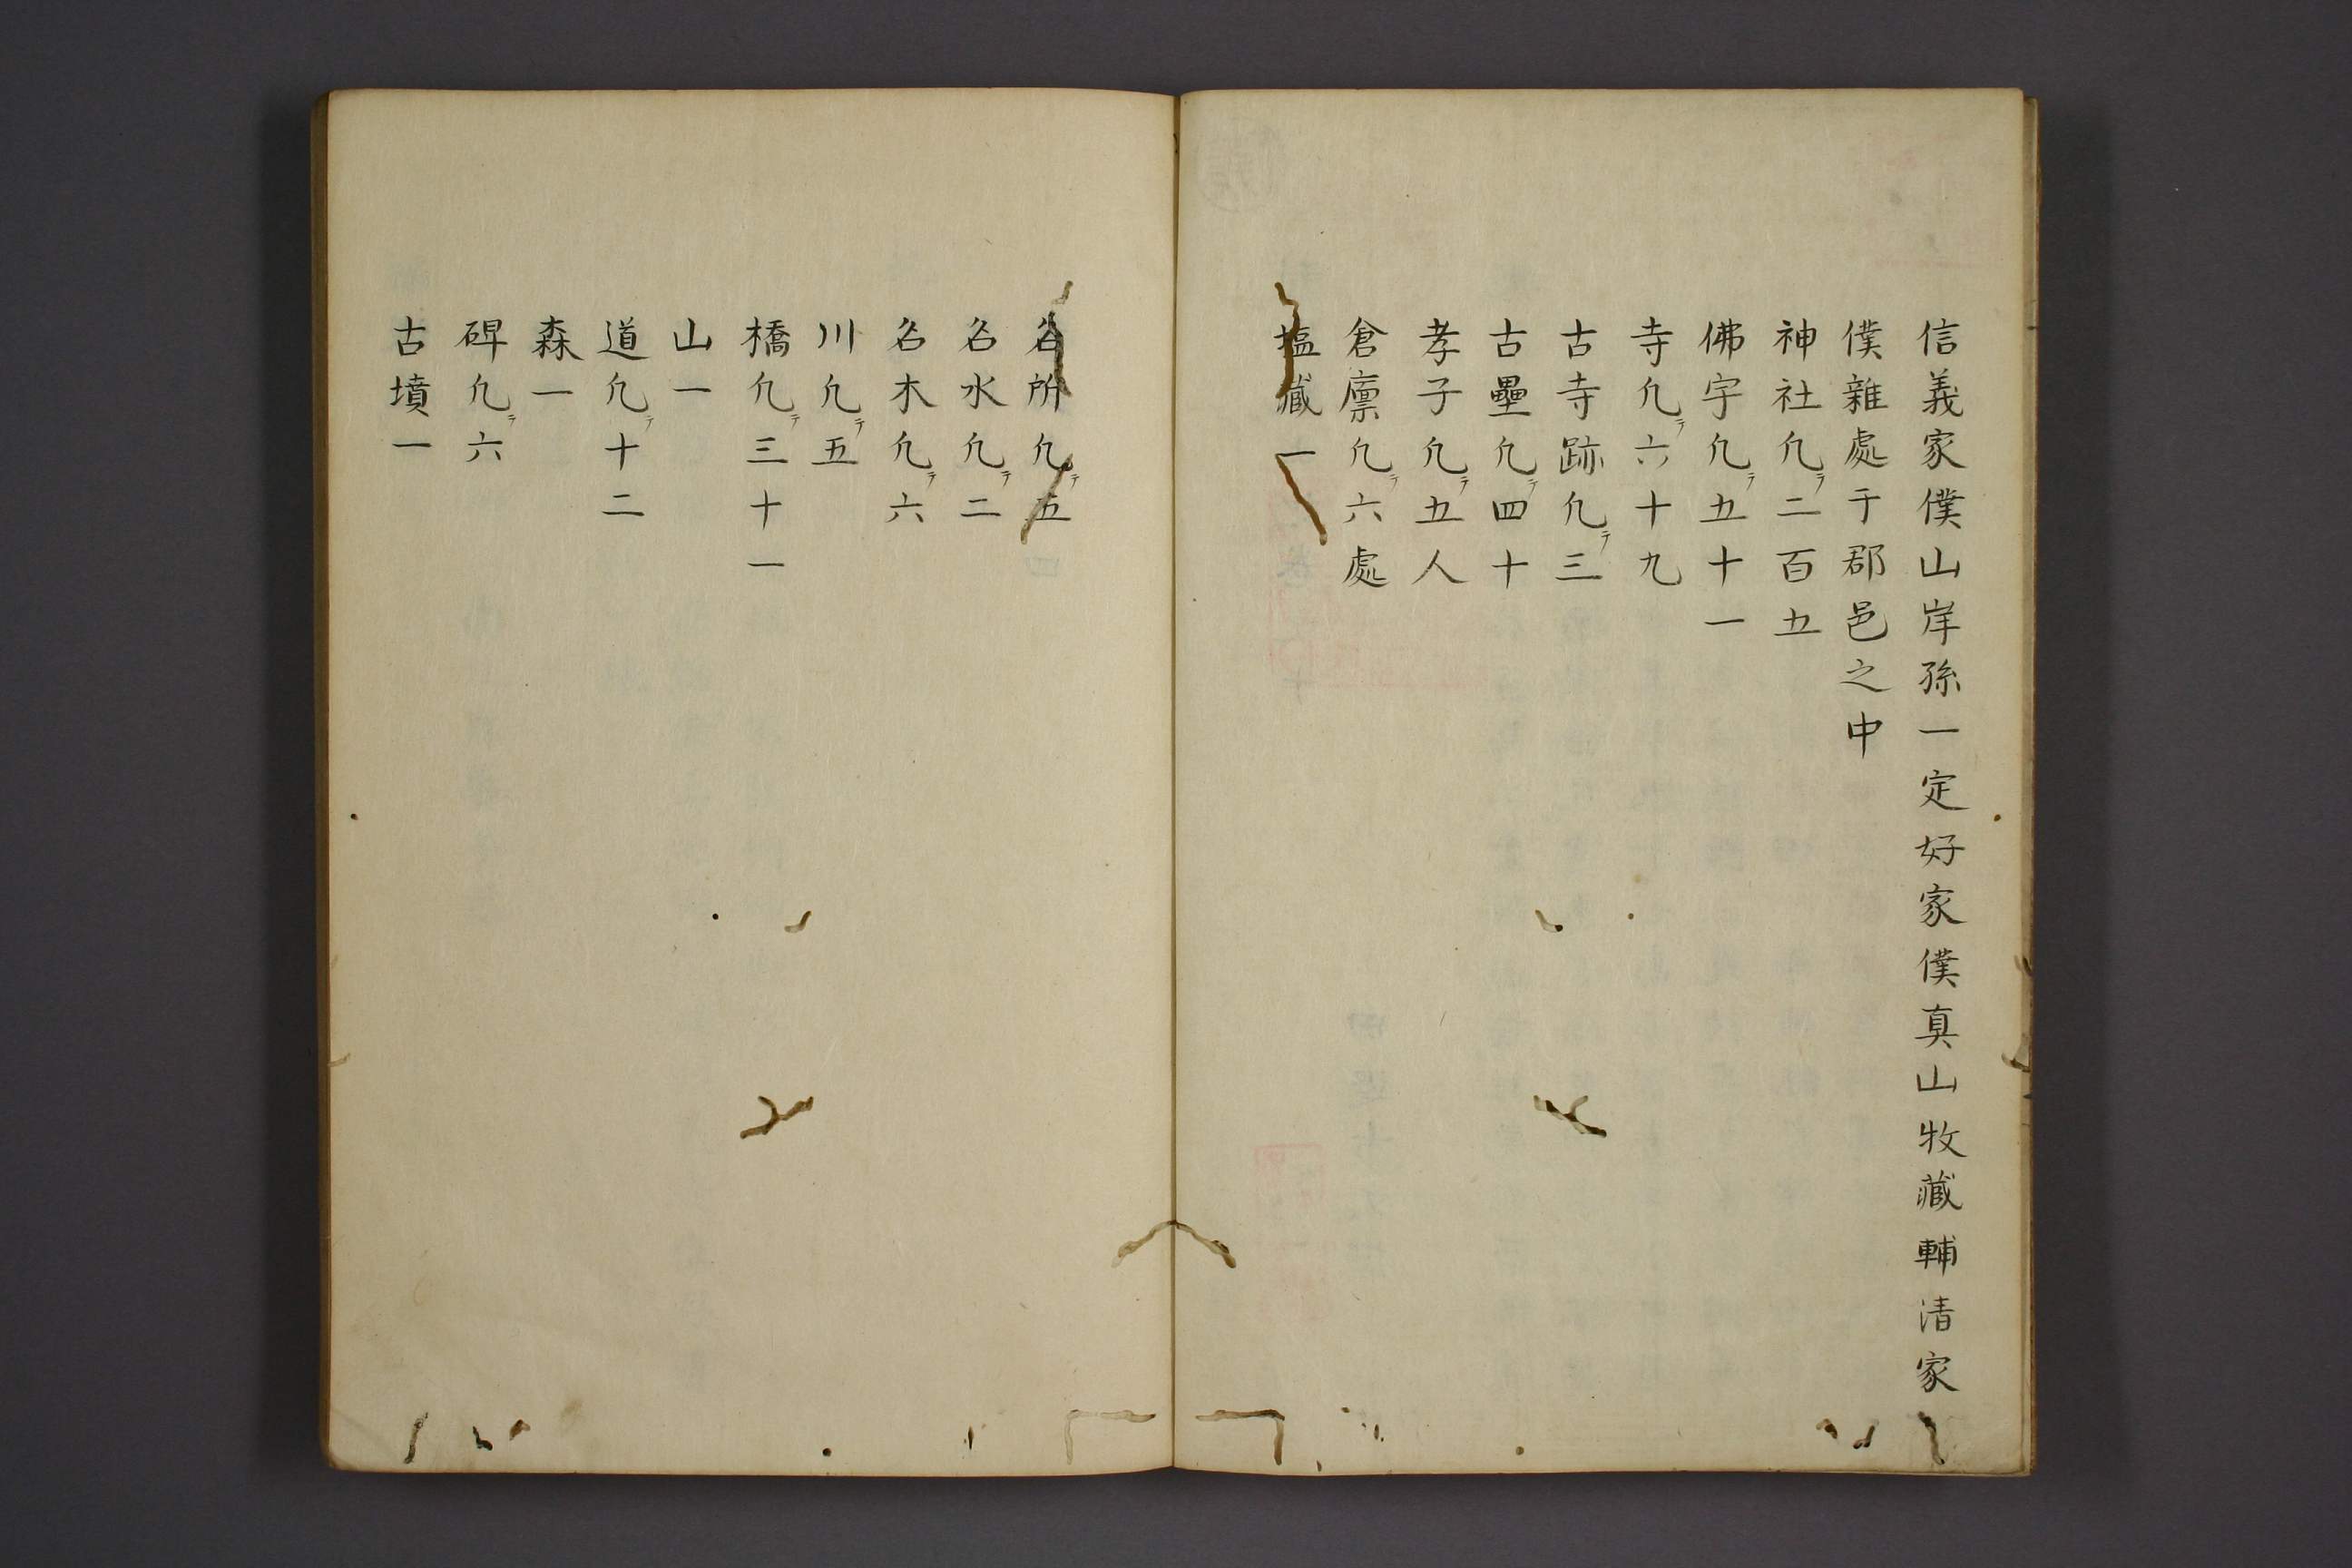 信義家僕山岸孫一定好家僕真山牧藏輔清家
僕雜處于郡邑之中
神社凢テ二百五
佛宇凢テ五十一
寺凢テ六十九
古寺跡凢テ三
古壘凢テ四十
孝子凢テ五人
倉廪凢テ六處
塩藏一
名所凢テ五
名水凢テ二
名木凢テ六
川凢テ五
橋凢テ三十一
山一
道凢テ十二
森一
碑凢テ六
古墳一